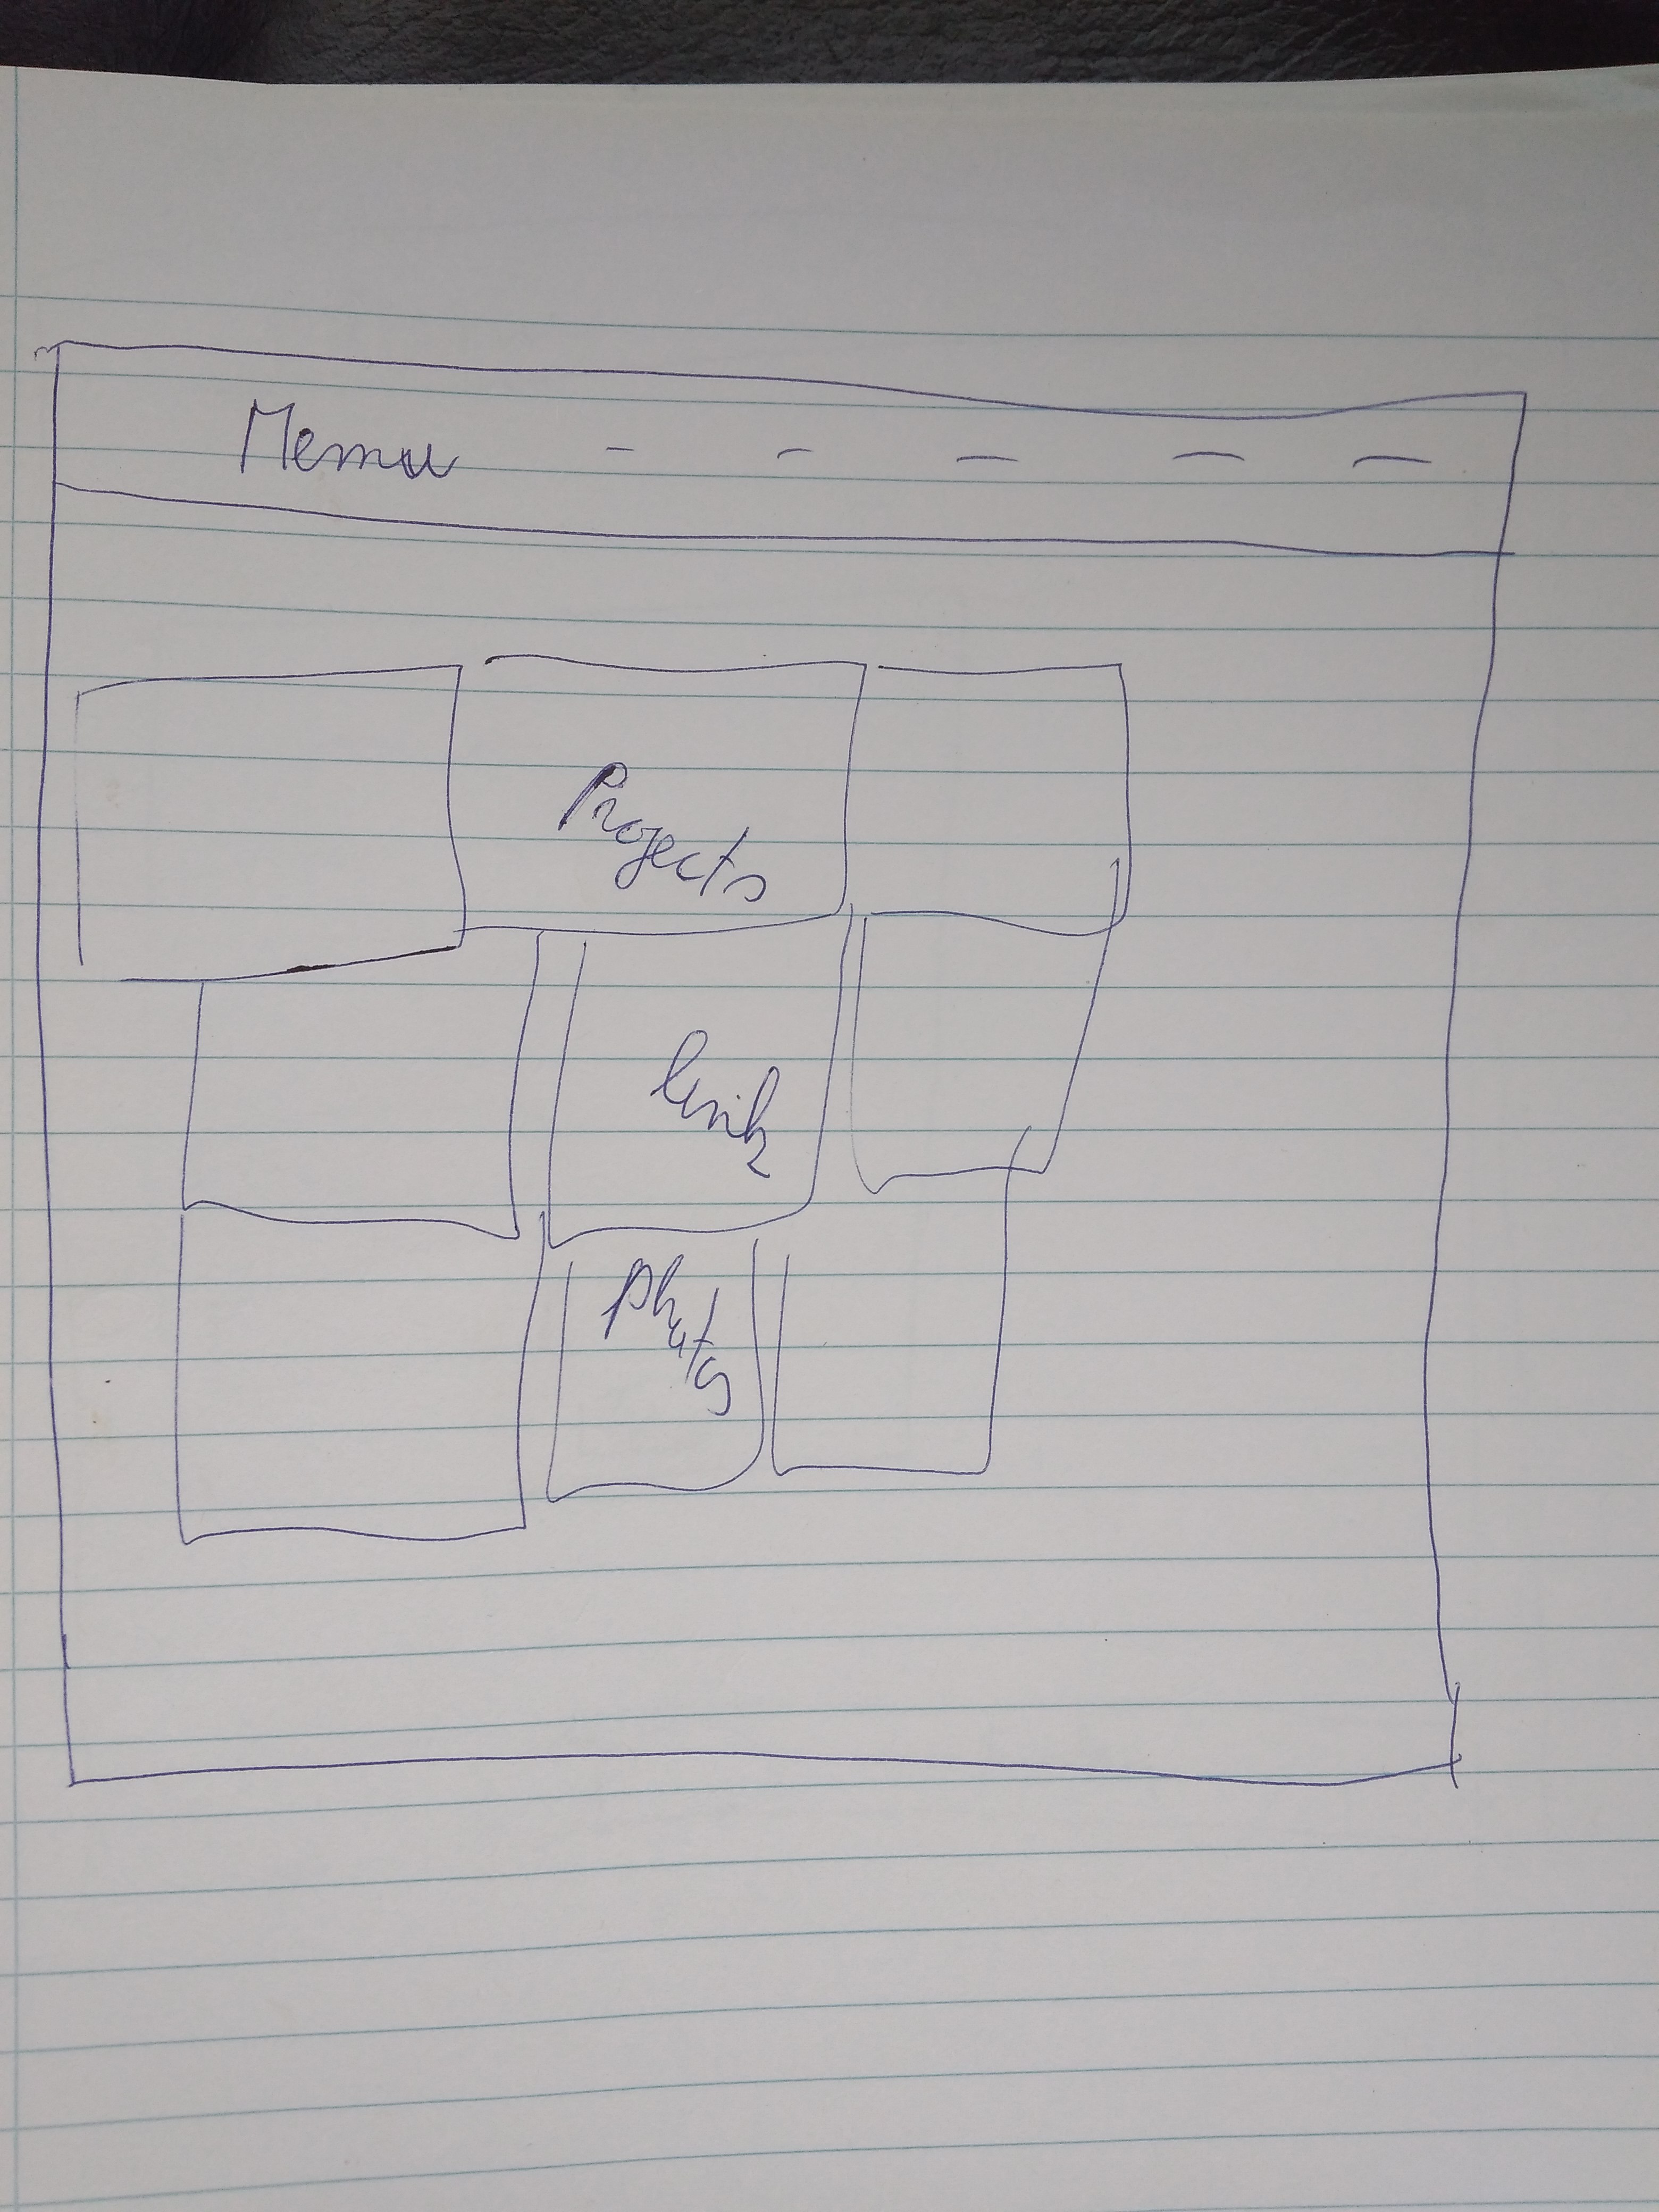 Menu - - - - -
Projects
link
Photos